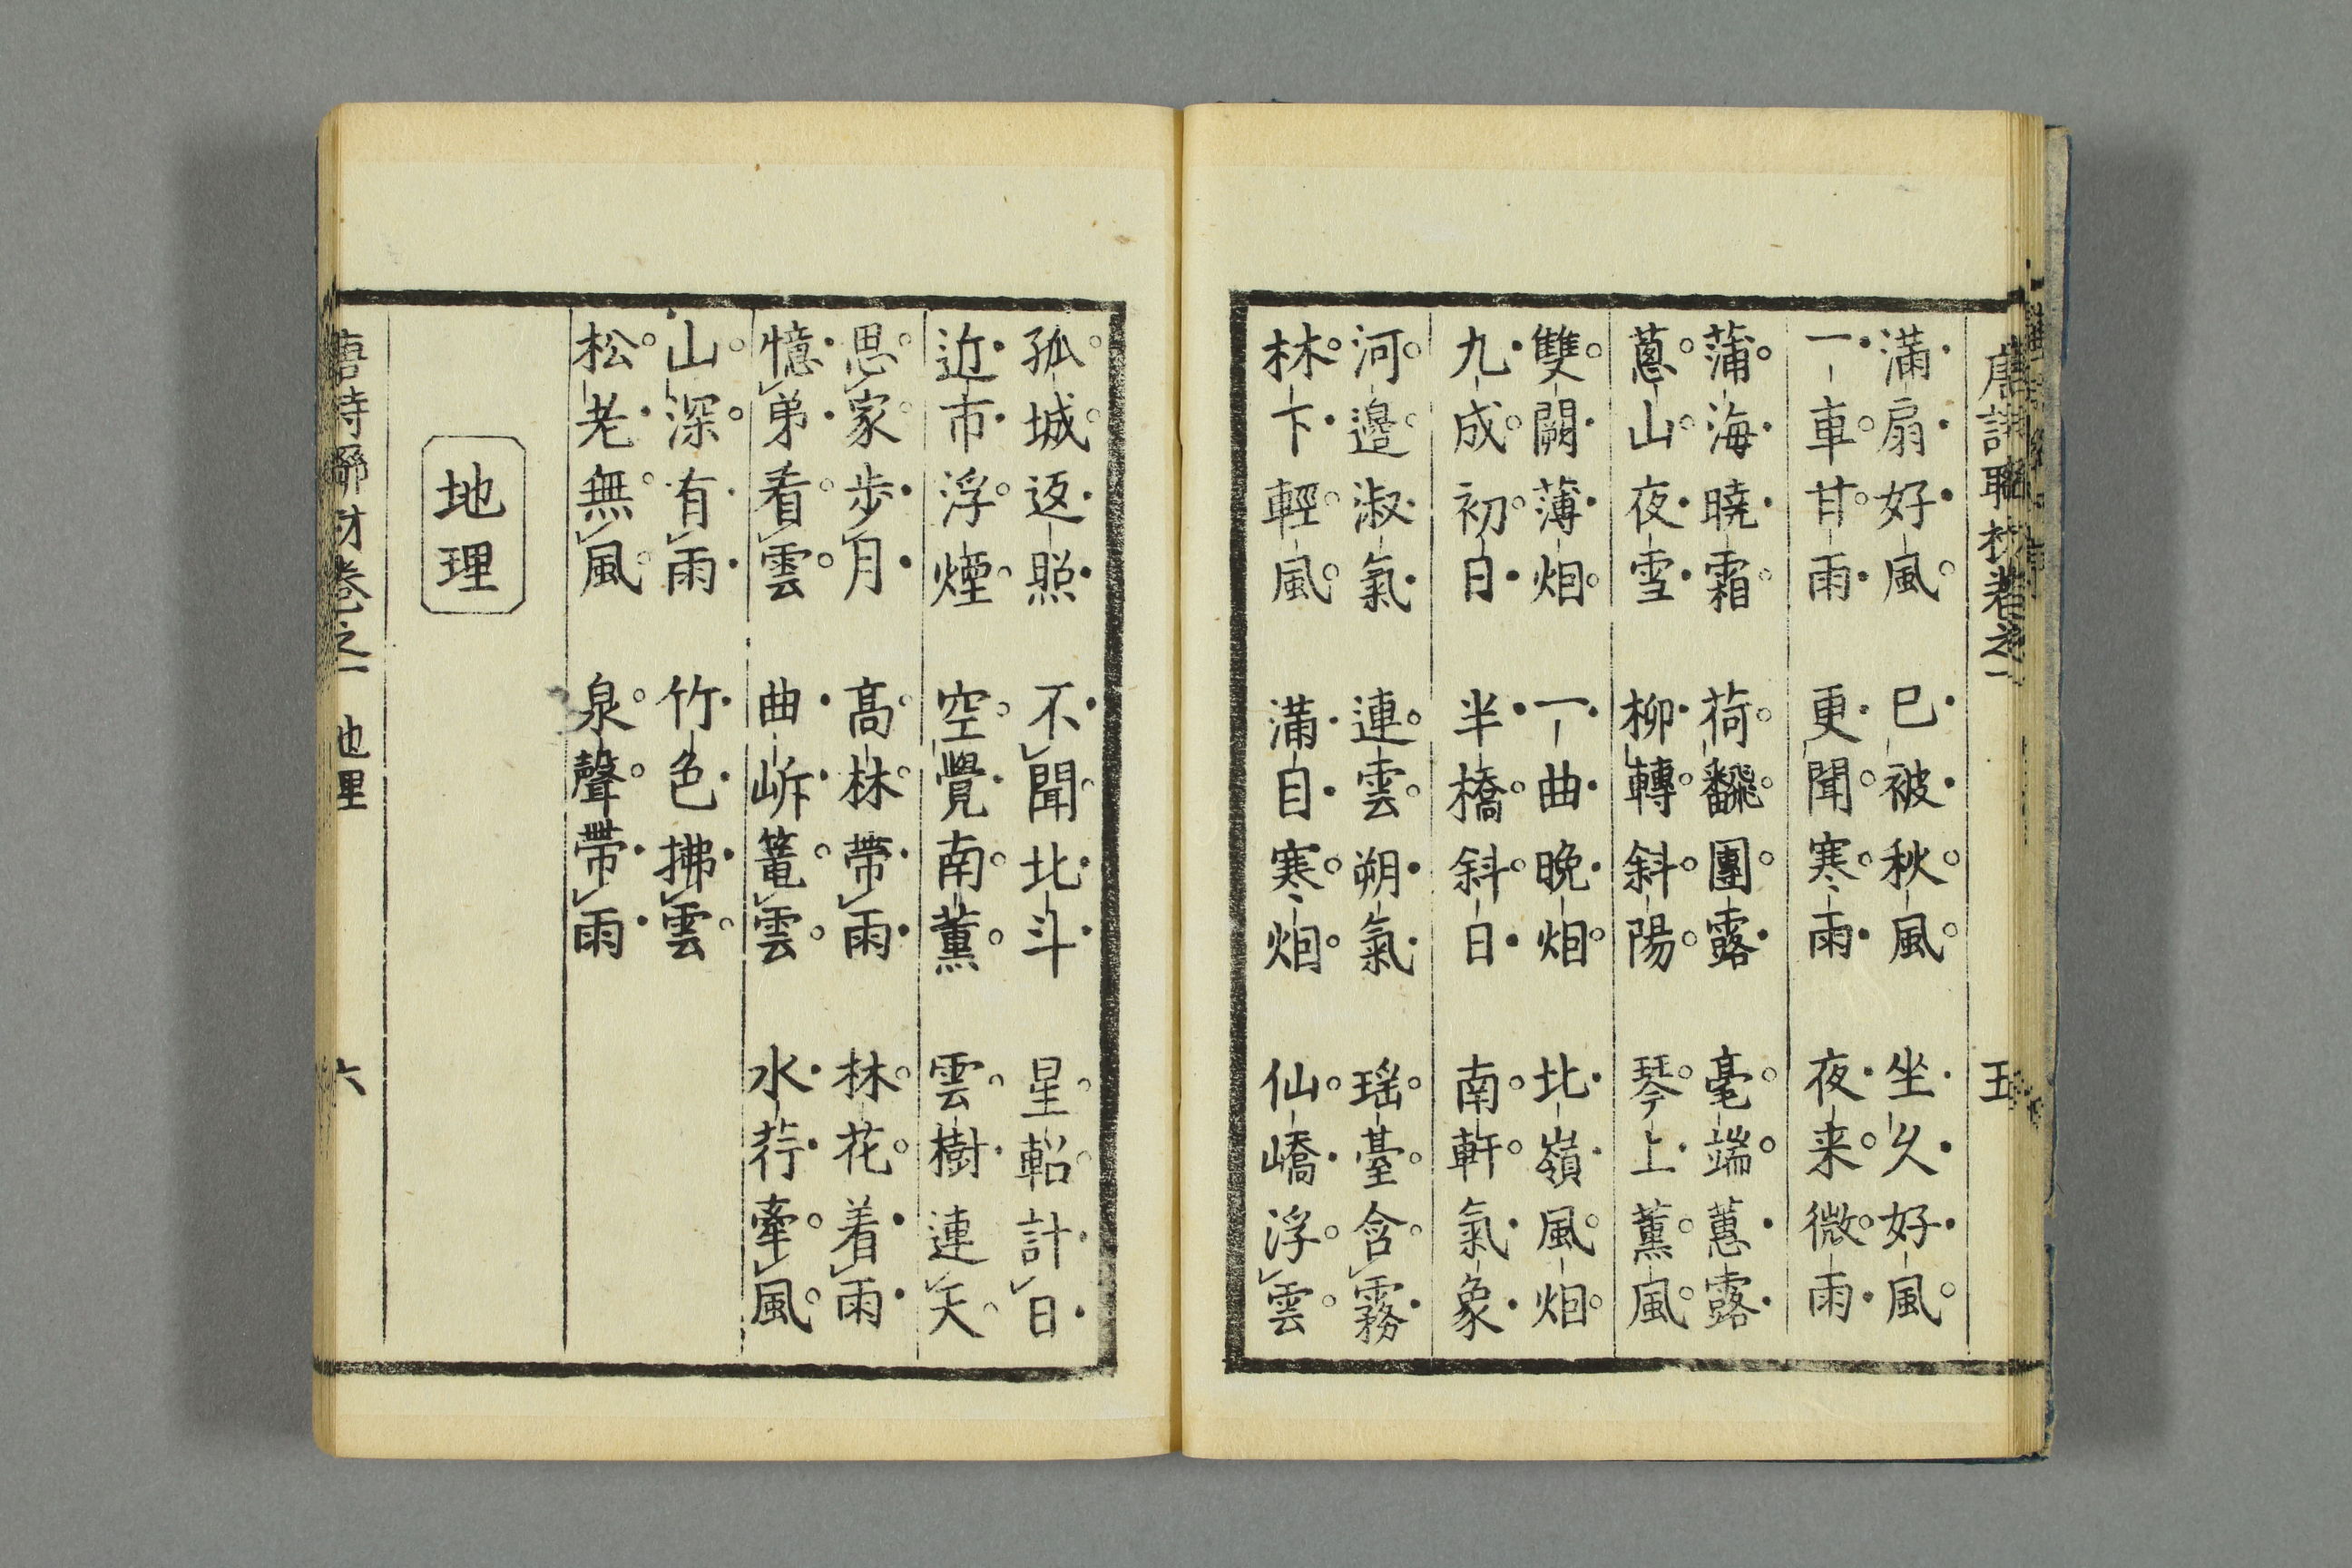 唐詩聯材卷之一 五
滿扇好風 已被秋風 坐久好風
一車甘雨 更聞寒雨 夜来微雨
蒲海曉霜 荷飜團露 毫端蕙露
蔥山夜雪 柳轉斜陽 琴上薰風
雙闕薄烟 一曲晚烟 北嶺風烟
九成初日 半橋斜日 南軒氣象
河邊淑氣 連雲朔氣 瑶臺含霧
林下輕風 滿目寒烟 仙嶠浮雲
孤城返照 不聞北斗 星軺計日
近市浮煙 空覺南薰 雲樹連天
思家步月 高林帶雨 林花着雨
憶弟看雲 曲岸篭雲 水荇牽風
山深有雨 竹色拂雲
松老無風 泉聲帶雨
地理
唐詩聯材卷之一 地理 六